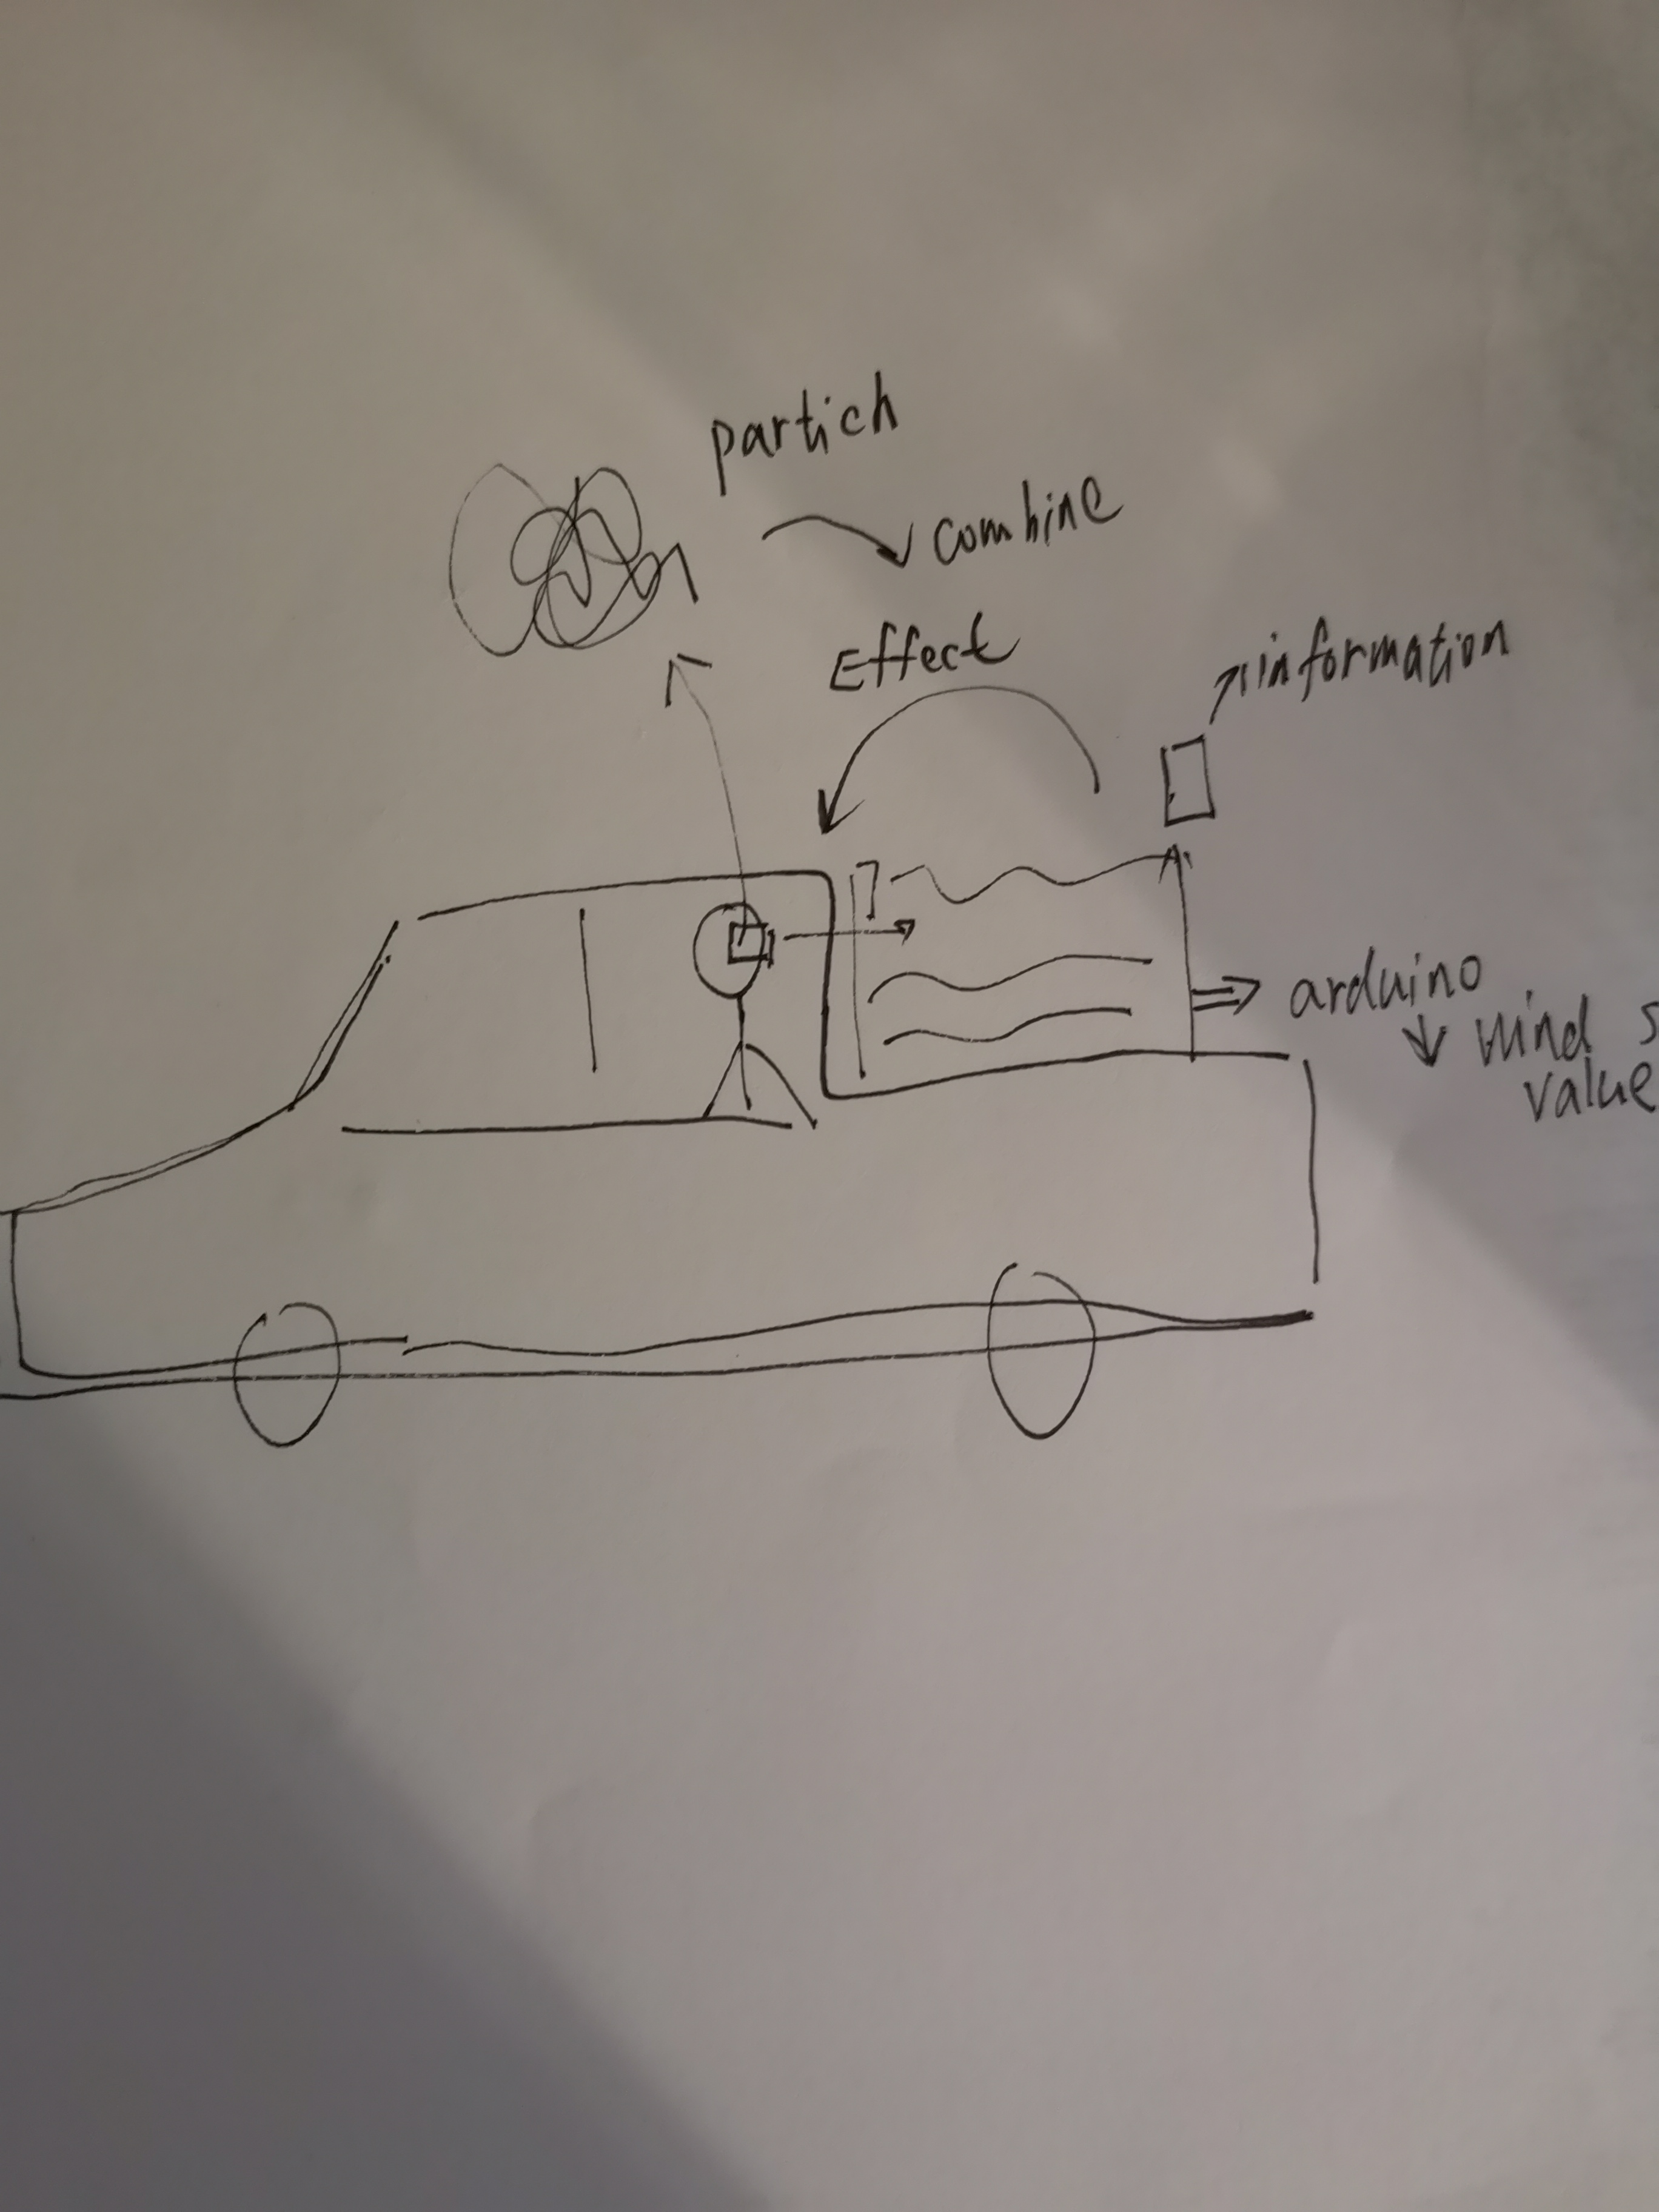 partich
combine
Effect
information
arduino
wind s
value